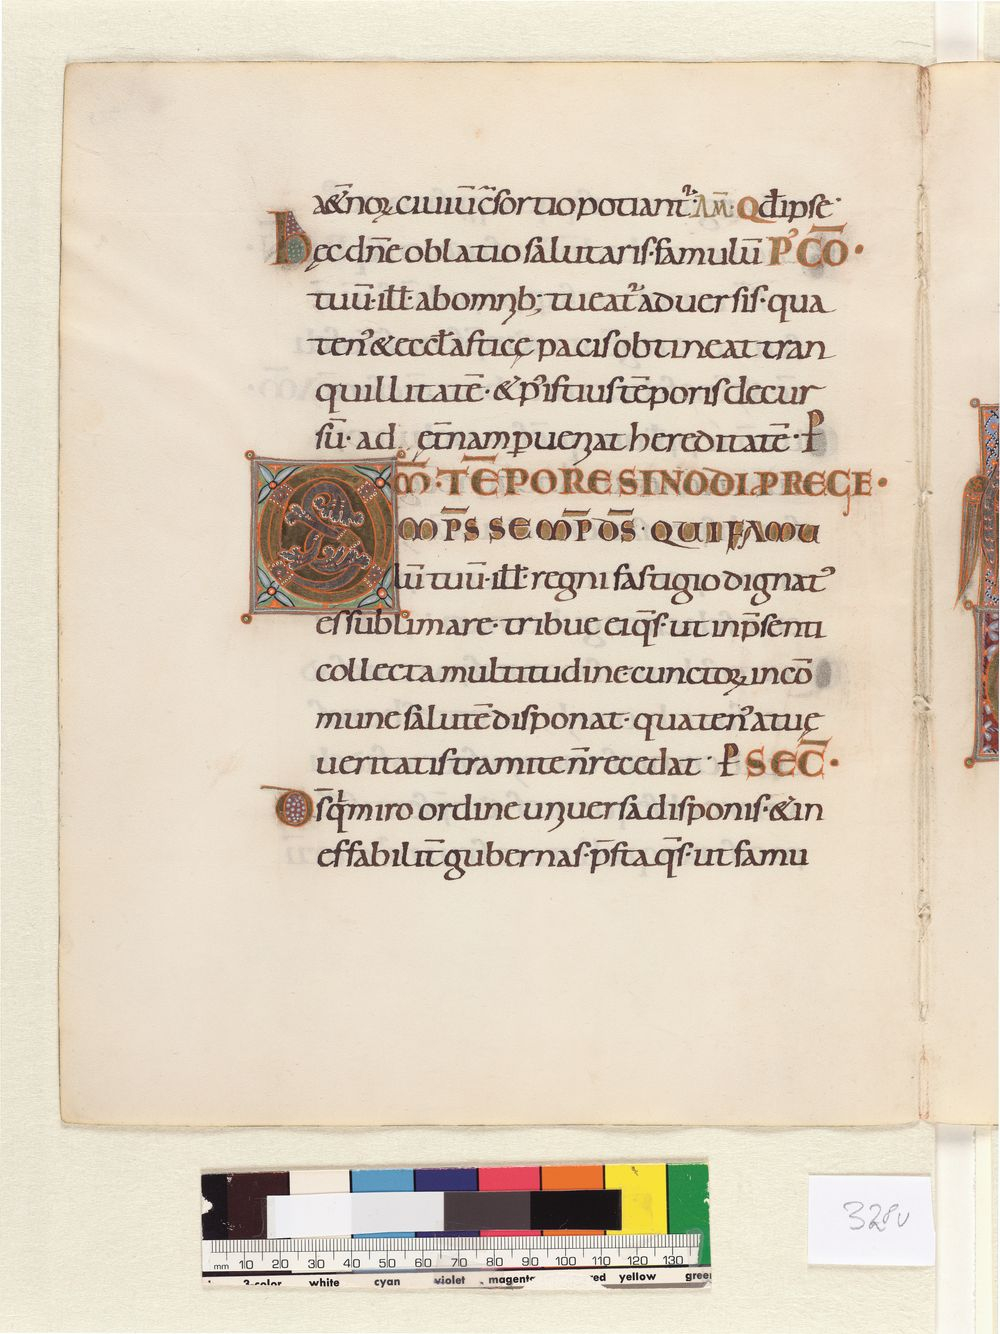 a&̄noꝝ ciuiū c̄sortio potiant᷑· AM̄· Qd̄ ipse·
hęc dn̄e oblatio salutaris· famulū P' CŌ·
tuū· ill̄· ab omnib; tueat᷑ aduersis· qua
ten᾽ & eccl̄asticę pacis obtineat tran
quillitatē· & p᾽ istius tēporis decur
sū· ad ęt̄nam ꝑueniat hereditatē· P
OM̄· TĒPORE SINODI PRECE·
M̄PS SEMP̄ DS̄· QUI FAMU
lū tuū· ill̄· regni fastigio dignat᾽
es sublimare· tribue ei qs̄· ut in p̄senti
collecta multitudine cunctoꝝ in cō
mune salutē disponat· quaten᾽ a tuę
ueritatis tramite n̄ recedat· P SEC̄·
Ds̄ q̄ miro ordine uniuersa disponis· & in
effabilit̄ gubernas· p̄sta qs̄· ut famu
328v
mm 10 20 30 40 50 60 70 80 90 100 110 120 130
3-color white cyan violet magenta red yellow green